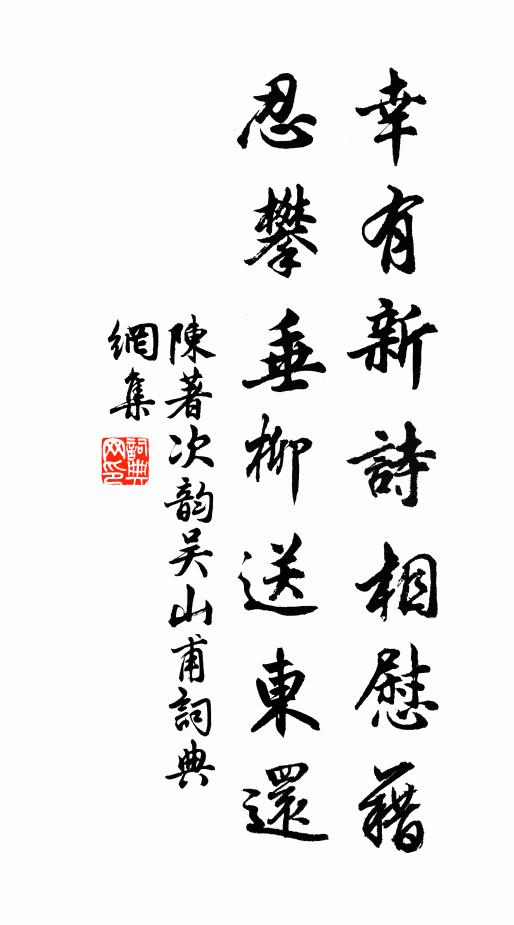 幸有新詩相慰藉
忍攀垂柳送東還
陳著次韵吴山甫詞典
網集
詞典
网印